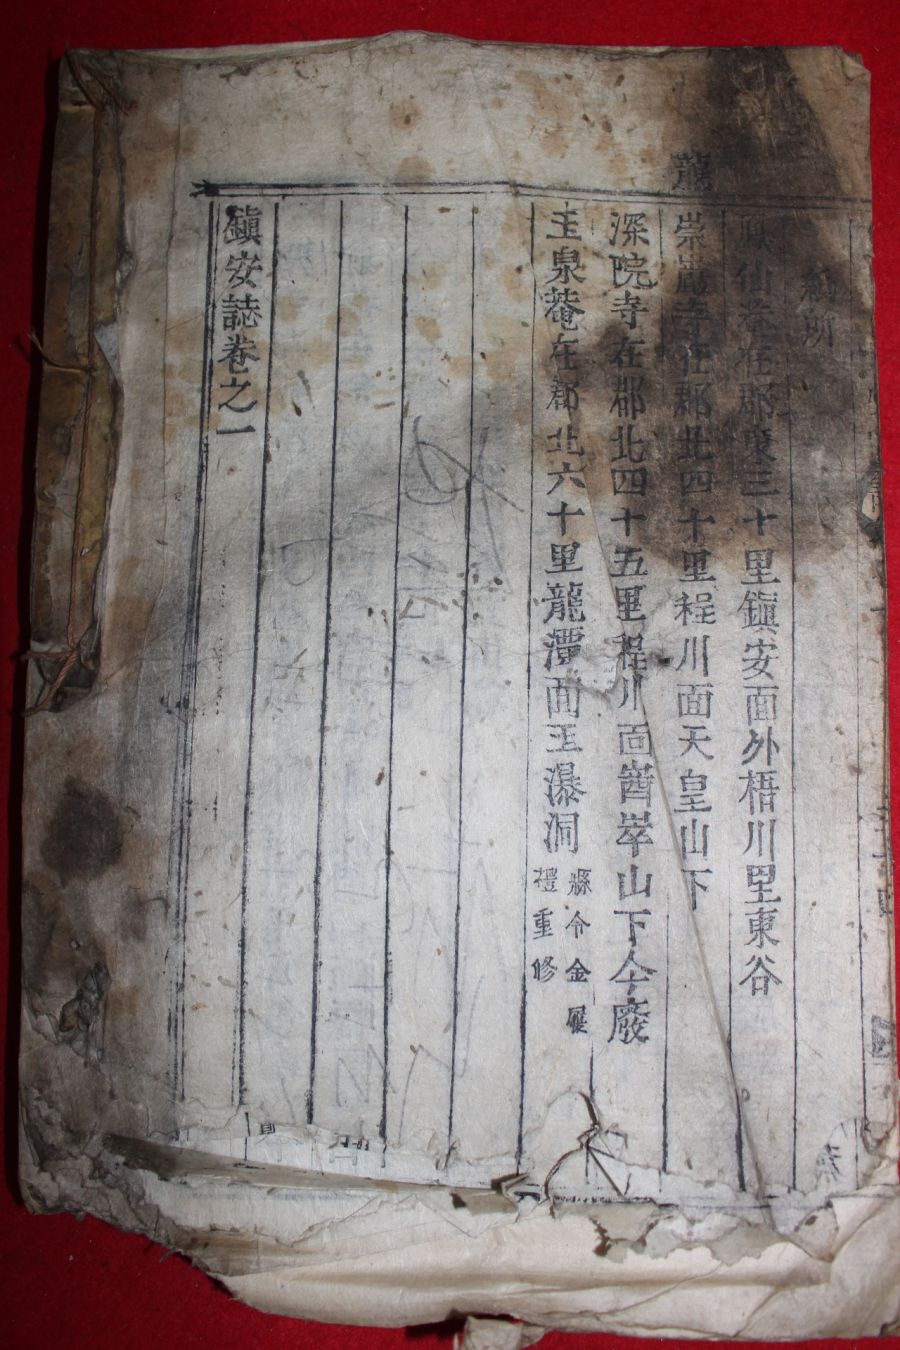 所
仙菴在郡東三十里鎭安面外梧川里東谷
崇巖寺在郡北四十里程川面天皇山下
深院寺在郡北四十五里程川面崷崒山下今廢
玉泉菴在郡北六十里龍潭面玉瀑洞
縣令金履
禮重修
鎭安誌卷之一